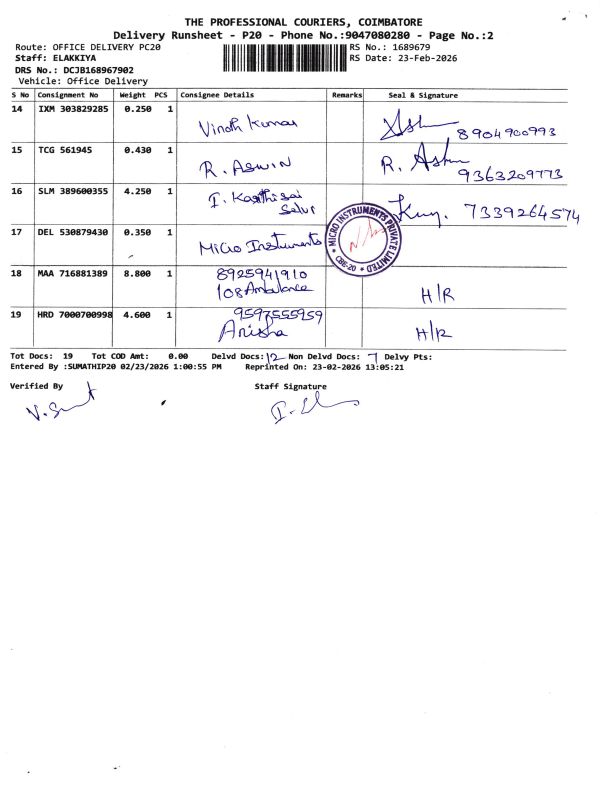 THE PROFESSIONAL COURIERS, COIMBATORE
Delivery Runsheet - P20 - Phone No.:9047080280 - Page No.:2
Route: OFFICE DELIVERY PC20 RS No.: 1689679
Staff: ELAKKIYA RS Date: 23-Feb-2026
DRS No.: DCJB168967902
Vehicle: Office Delivery
S No Consignment No Weight PCS Consignee Details Remarks Seal & Signature
14 IXM 303829285 0.250 1 Vinoth Kumar 8904900993
15 TCG 561945 0.430 1 R. ASWIN R. 9363209773
16 SLM 389600355 4.250 1 I. Karthi Sai 7339264574
17 DEL 530879430 0.350 1 Micro Instruments MICRO INSTRUMENTS PRIVATE LIMITED CBE-20
18 MAA 716881389 8.800 1 8925941910 H/R
108 Ambulance
19 HRD 7000700998 4.600 1 9597555959 H/R
Anisha
Tot Docs: 19 Tot COD Amt: 0.00 Delvd Docs: 12 Non Delvd Docs: 7 Delvy Pts:
Entered By :SUMATHIP20 02/23/2026 1:00:55 PM Reprinted On: 23-02-2026 13:05:21
Verified By Staff Signature